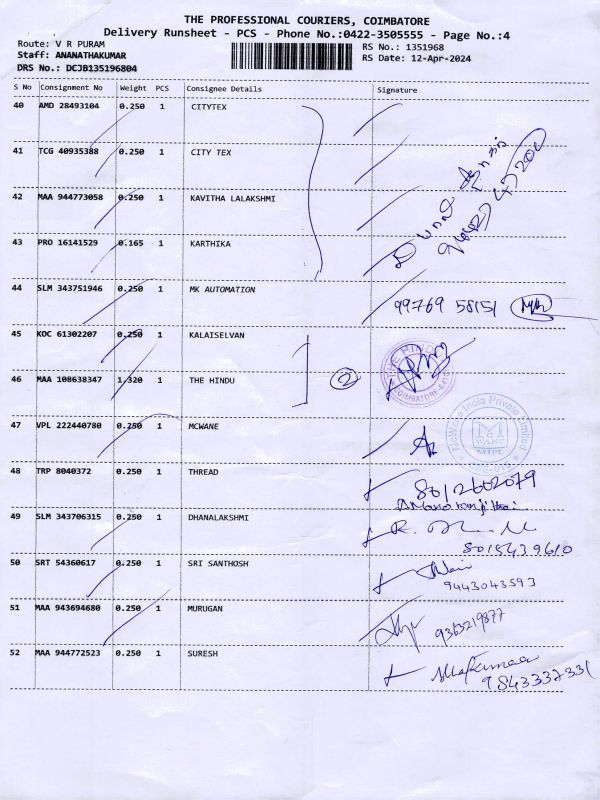 THE PROFESSIONAL COURIERS, COIMBATORE
Delivery Runsheet - PCS - Phone No.:0422-3505555 - Page No.:4
Route: V R PURAM RS No.: 1351968
Staff: ANANATHAKUMAR RS Date: 12-Apr-2024
DRS No.: DCJB135196804
S No Consignment No Weight PCS Consignee Details Signature
40 AMD 28493104 0.250 1 CITYTEX
41 TCG 40935388 0.250 1 CITY TEX
42 MAA 944773058 0.250 1 KAVITHA LALAKSHMI
43 PRO 16141529 0.165 1 KARTHIKA
44 SLM 343751946 0.250 1 MK AUTOMATION
99769 58151
45 KOC 61302207 0.250 1 KALAISELVAN
THE HINDU
46 MAA 108638347 1.320 1 THE HINDU 2
COIMBATORE
47 VPL 222440780 0.250 1 MCWANE
McWane India Private Limited
MCWANE
MIPL
48 TRP 8040372 0.250 1 THREAD 8012602079
49 SLM 343706315 0.250 1 DHANALAKSHMI
8015439610
50 SRT 54360617 0.250 1 SRI SANTHOSH
9443043593
51 MAA 943694680 0.250 1 MURUGAN
9363219877
52 MAA 944772523 0.250 1 SURESH
9843337331